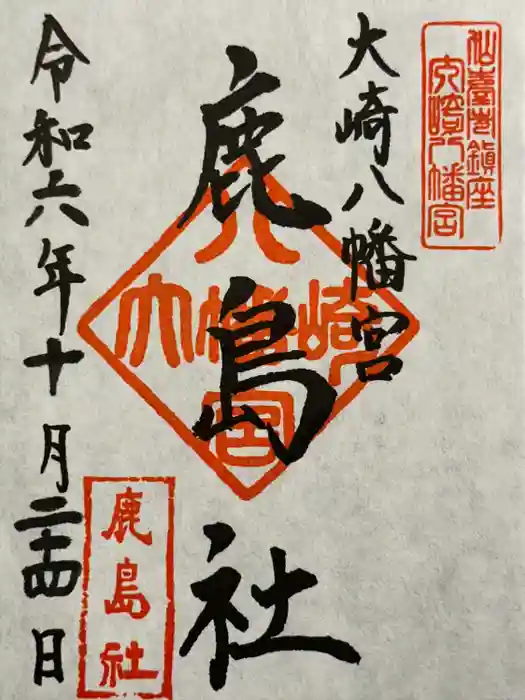 仙臺巷鎮座
大崎八幡宮
大崎八幡宮
鹿島社
大崎八幡宮
鹿島社
令和六年十月二十四日